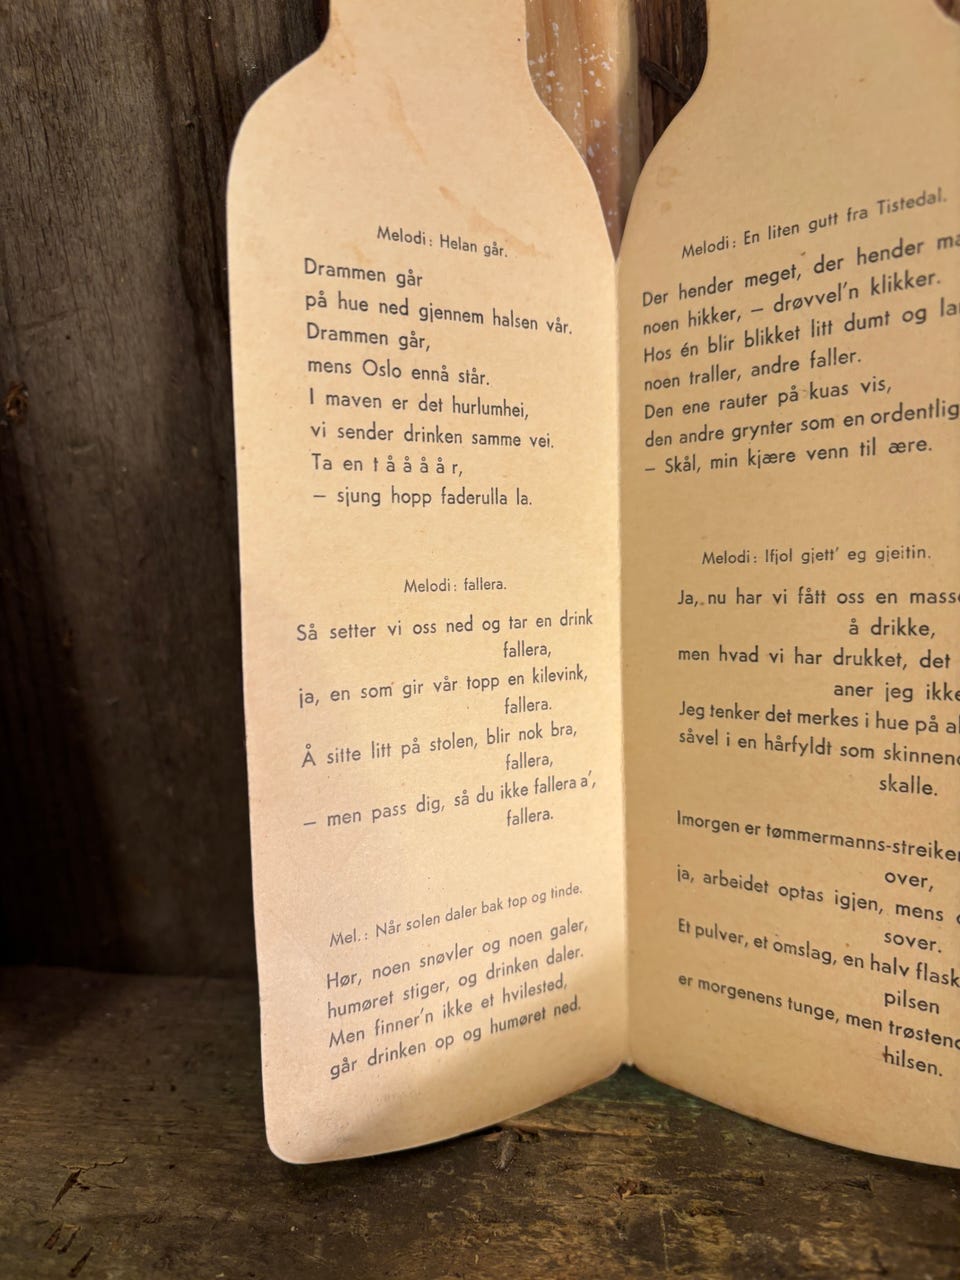 Melodi: Helan går.
Drammen går
på hue ned gjennem halsen vår.
Drammen går,
mens Oslo ennå står.
I maven er det hurlumhei,
vi sender drinken samme vei.
Ta en t å å å å r,
— sjung hopp faderulla la.
Melodi: fallera.
Så setter vi oss ned og tar en drink
fallera,
ja, en som gir vår topp en kilevink,
fallera.
Å sitte litt på stolen, blir nok bra,
fallera,
— men pass dig, så du ikke fallera a',
fallera.
Mel.: Når solen daler bak top og tinde.
Hør, noen snøvler og noen galer,
humøret stiger, og drinken daler.
Men finner'n ikke et hvilested,
går drinken op og humøret ned.
Melodi: En liten gutt fra Tistedal.
Der hender meget, der hender
noen hikker, — drøvvel'n klikker.
Hos én blir blikket litt dumt og
noen traller, andre faller.
Den ene rauter på kuas vis,
den andre grynter som en ordentlig
— Skål, min kjære venn til ære.
Melodi: Ifjol gjett' eg gjeitin.
Ja, nu har vi fått oss en
å drikke,
men hvad vi har drukket, det
aner jeg
Jeg tenker det merkes i hue på
såvel i en hårfyldt som
skalle.
Imorgen er
over,
ja, arbeidet optas igjen, mens
sover.
Et pulver, et omslag, en halv
pilsen
er morgenens tunge, men
hilsen.